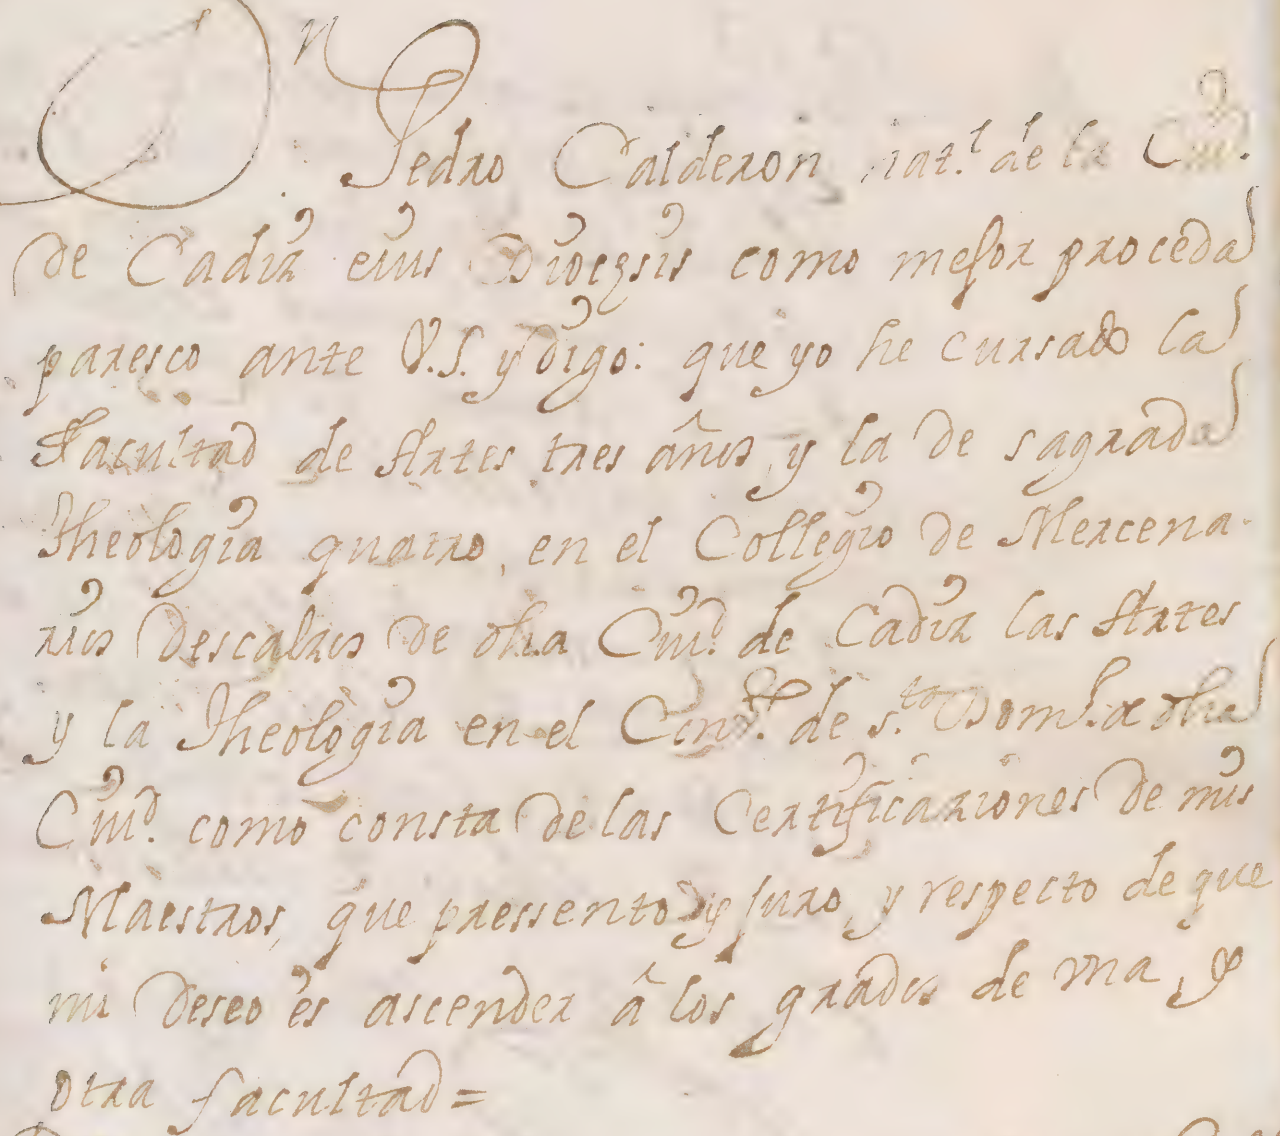 Dn. Pedro Calderon nat.l de la Ciud.
de Cadiz eius Diocęsis como mejor proceda
paresco ante V.S. y digo: que yo he cursado la
Facultad de Artes tres años, y la de sagrada
Theologia quatro, en el Collegio de Mercena-
rios Descalzos de dha Ciud. de Cadiz las Artes
y la Theologia en el Conv.to de s.to Dom.o de dha
Ciud. como consta de las Certificaziones de mis
Maestros, que pressento, y juro, y respecto de que
mi Deseo es ascender â los grados de vna, y
otra facultad=